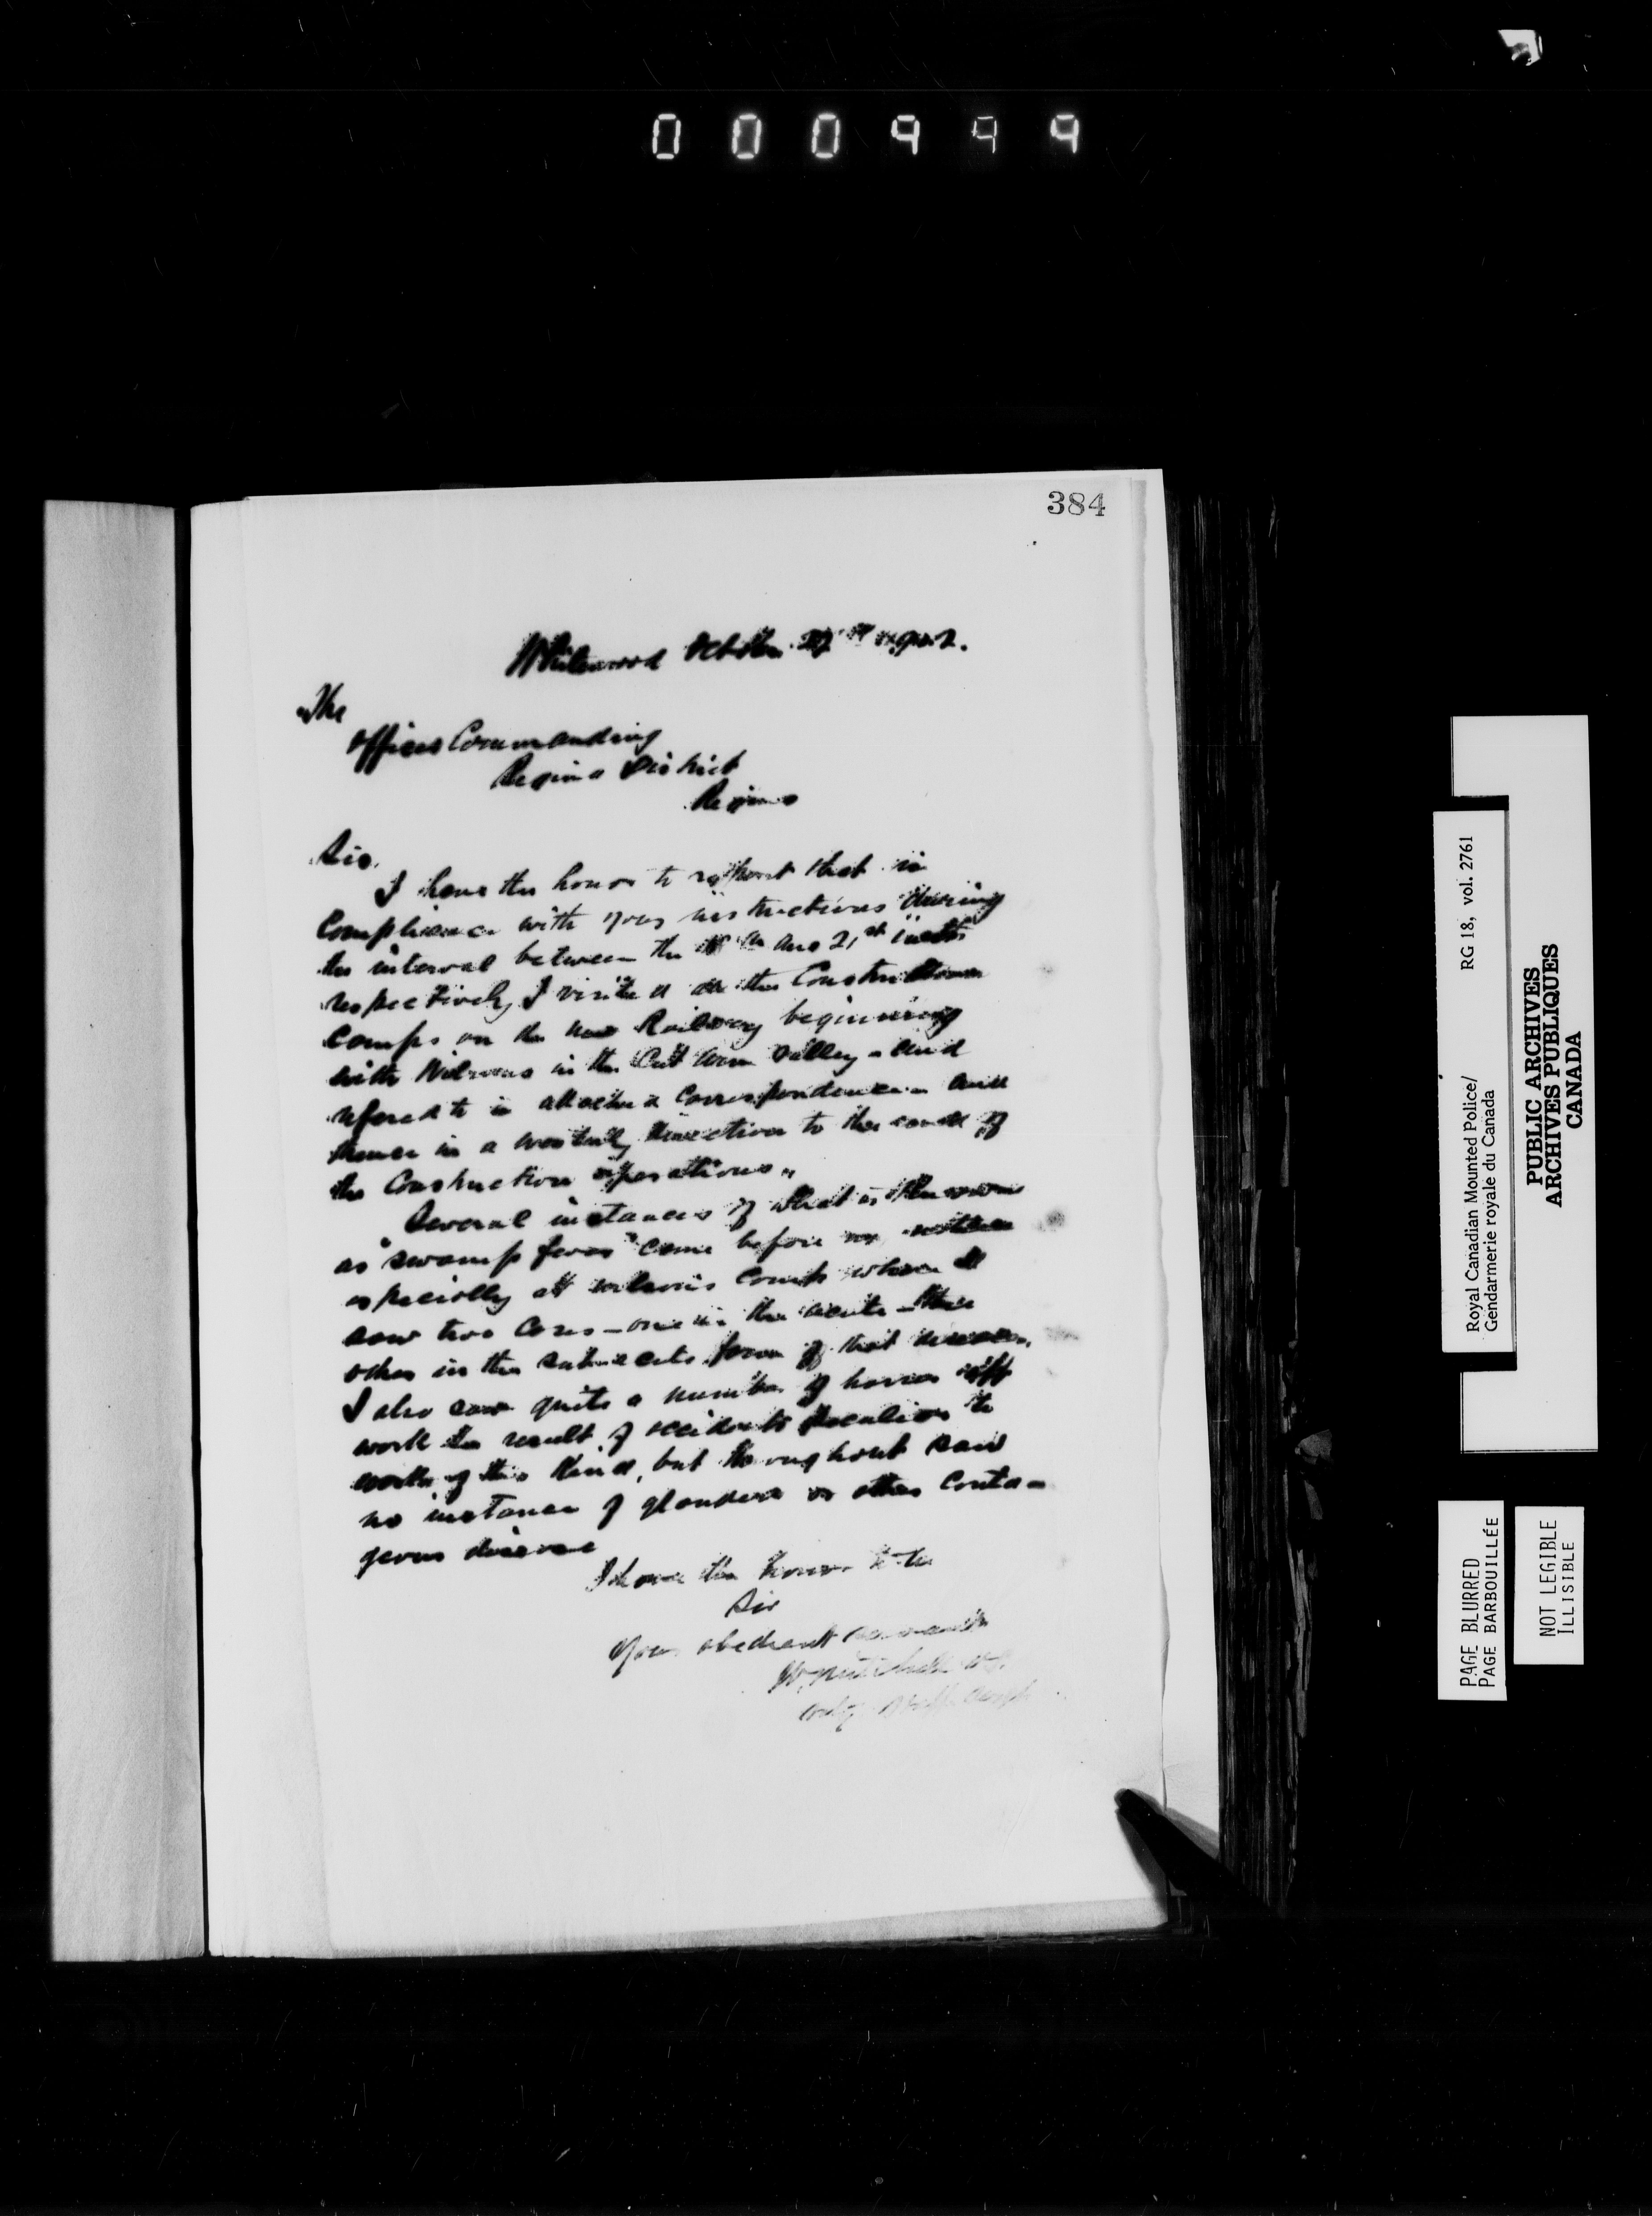 000949
384
Whitewood October
The
Officer Commanding
Regina District
Regina
Sir,
I have the honor to report that in
Compliance with your instructions during
the interval between the and 21st
respectively I visited all the Construction
Camps on the new Railway beginning
with in the Cut Arm Valley - and
refered to in attached Correspondence - and
thence in a westerly direction to the end of
the Construction operations.
Several instances of what is known
as "swamp fever" came before my notice
especially at camp where I
saw two Cases - one in the acute - the
other in the subacute form of that disease.
I also saw quite a number of horses off
work the result of accidents peculiar to
work of this kind, but throughout saw
no instance of glanders or other Conta-
geous disease
I have the honor to be
Sir
Your obedient servant
Royal Canadian Mounted Police/ RG 18, vol. 2761
Gendarmerie royale du Canada
PUBLIC ARCHIVES
ARCHIVES PUBLIQUES
CANADA
PAGE BLURRED
PAGE BARBOUILLÉE
NOT LEGIBLE
ILLISIBLE